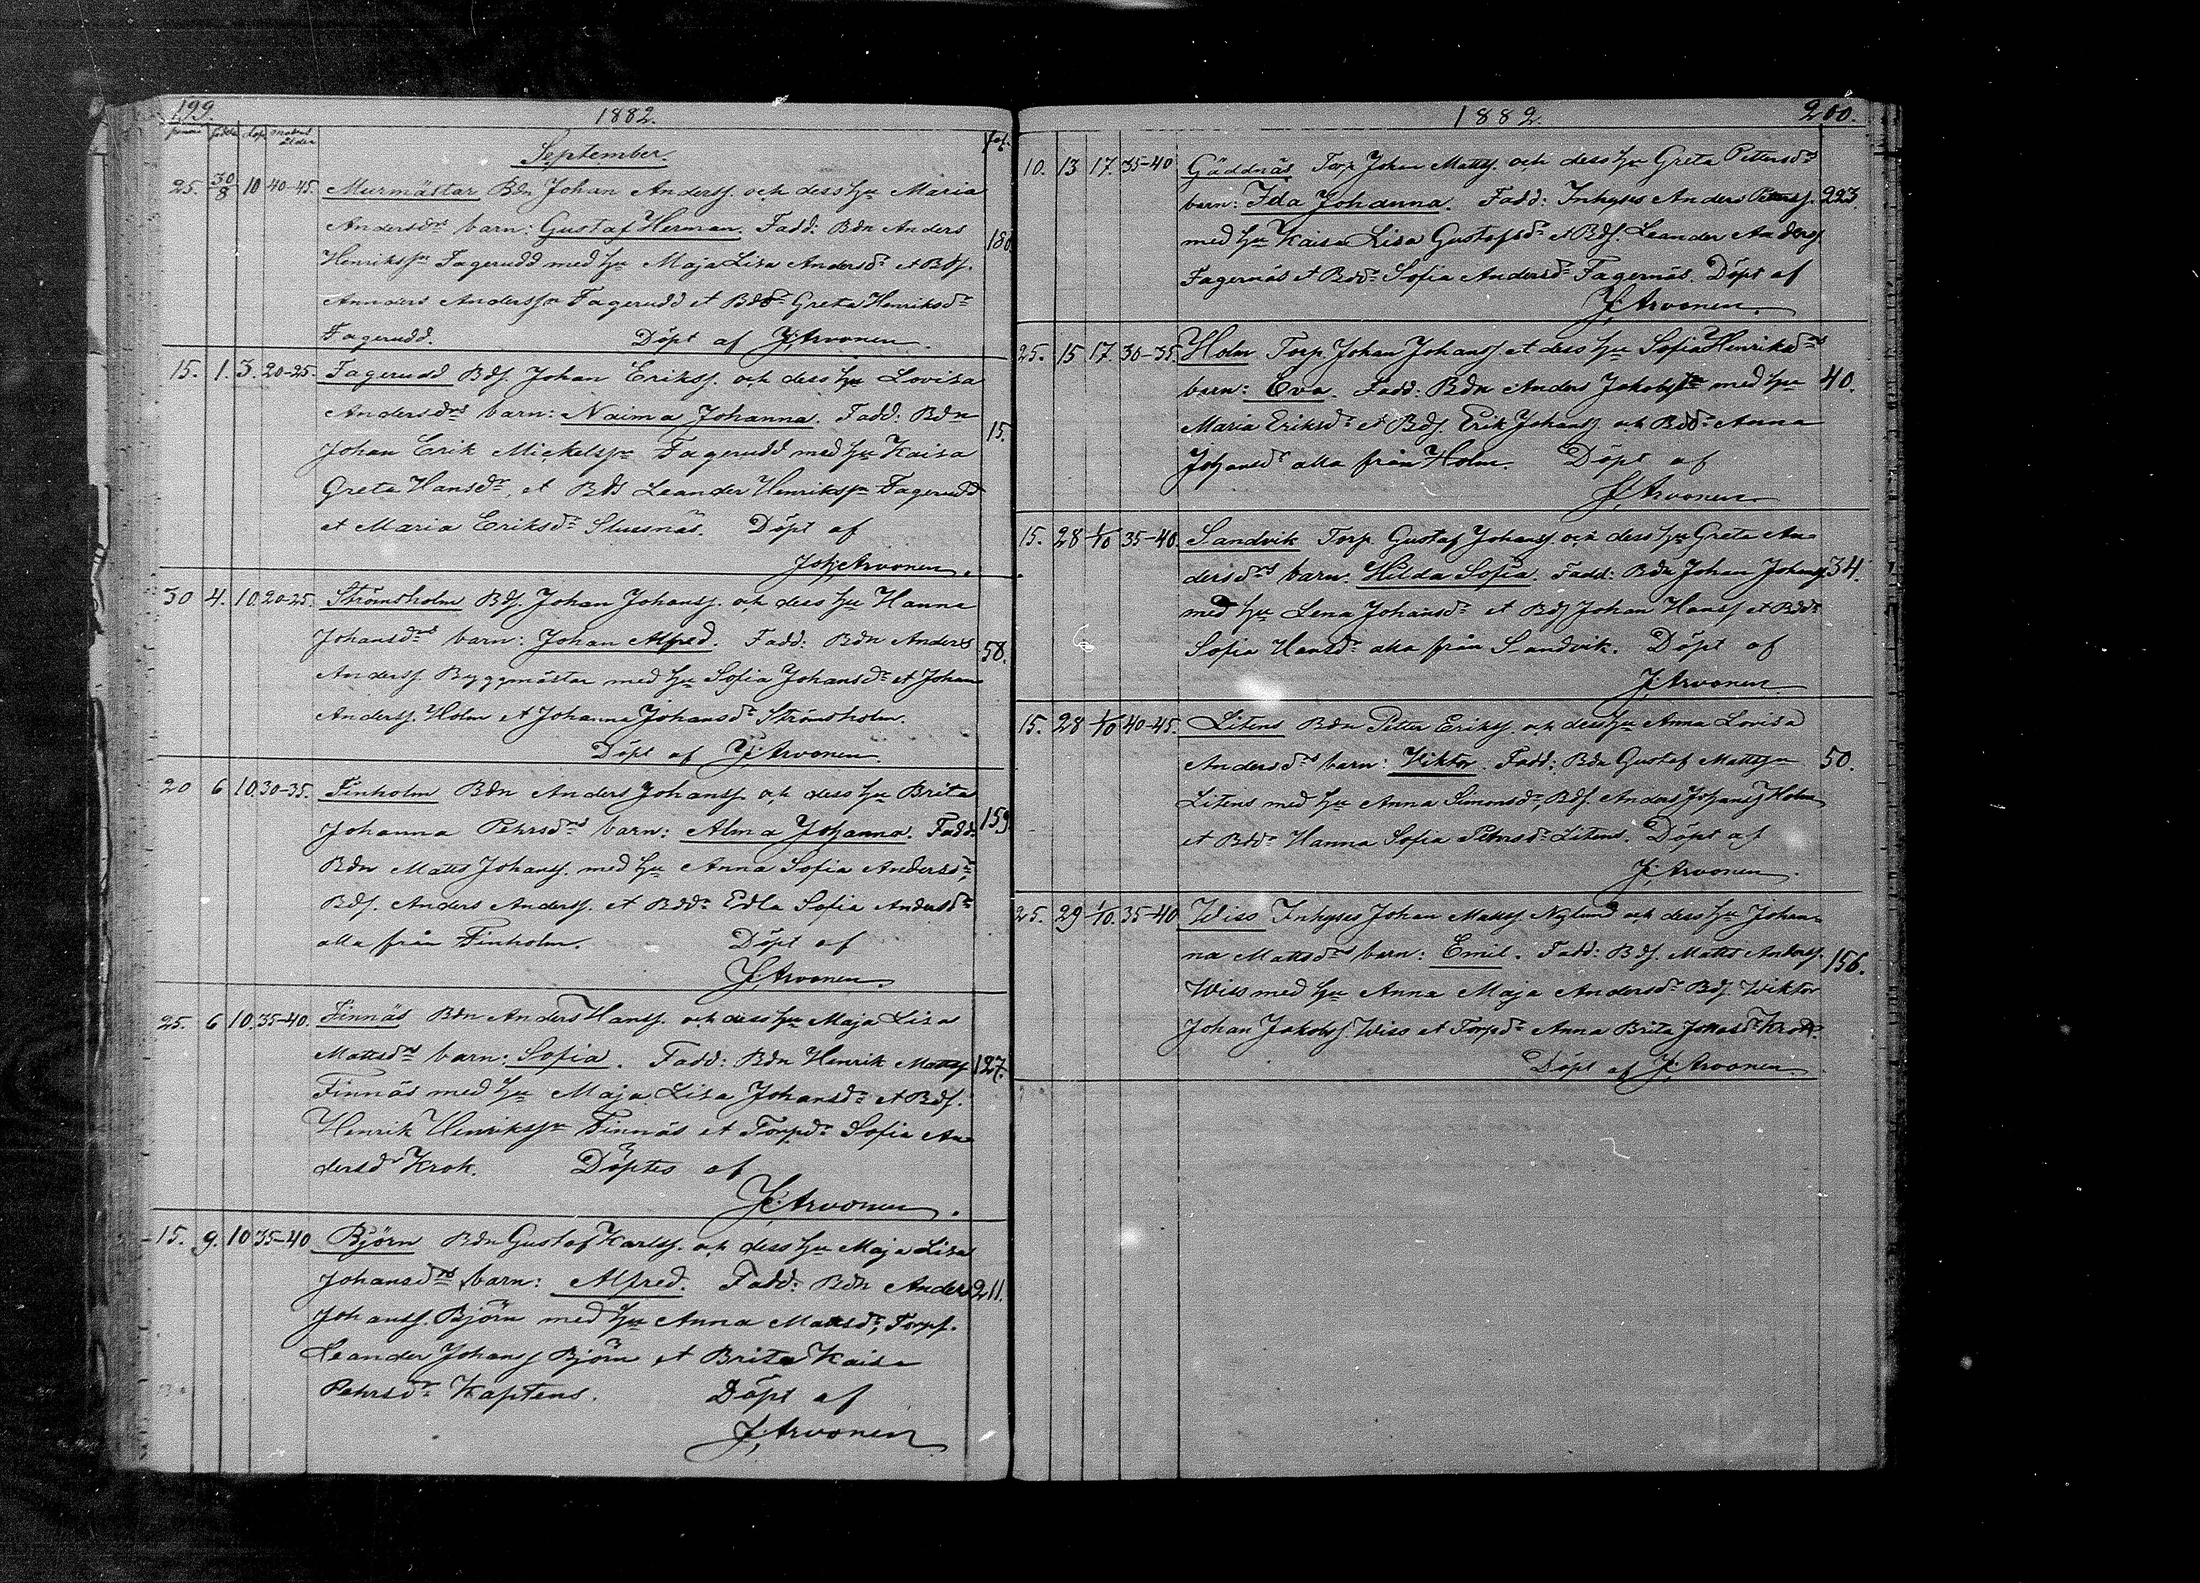 199.
1882.
födde döp moderns ålder
fol.
September.
25. 30/8 10 40-45. Murmästar Bdn Johan Anderss. och dess hu Maria
Andersdrs barn: Gustaf Herman. Fadd: Bdn Anders
Henrikssn Fagerudd med hu Maja Lisa Andersdr et Bds.
Annders Anderssn Fagerudd et Bddr Greta Henriksdr
Fagerudd. Döpt af J. Arvonen.
15. 1. 3. 20-25. Fagerudd Bds. Johan Erikss. och dess hu Lovisa
Andersdrs barn: Naima Johanna. Fadd: Bdn 15.
Johan Erik Mickelssn Fagerudd med hu Kaisa
Greta Hansdr, et Bds Leander Henrikssn Fagerudd
et Maria Eriksdr Slussnäs. Döpt af
Joh. Arvonen.
30 4. 10. 20-25. Strömsholm Bds. Johan Johanss. och dess hu Hanna
Johansdrs barn: Johan Alfred. Fadd: Bdn Anders 58.
Anderss. Byggmästar med hu Sofia Johansdr et Johan
Anderss. Holm et Johanna Johansdr Strömsholm.
Döpt af J. Arvonen.
20 6 10. 30-35. Finholm Bdn Anders Johanss. och dess hu Brita
Johanna Pehrsdrs barn: Alma Johanna. Fadd: 159.
Bdn Matts Johanss. med hu Anna Sofia Andersdr,
Bds. Anders Anderss. et Bddr Edla Sofia Andersdr
alla från Finholm. Döpt af
J. Arvonen.
25. 6 10. 35-40. Finnäs Bdn Anders Hanss. och dess hu Maja Lisa
Mattsdrs barn: Sofia. Fadd: Bdn Henrik Mattss 127.
Finnäs med hu Maja Lisa Johansdr et Bds.
Henrik Henrikssn Finnäs et Torpdr Sofia An-
dersdr Krok. Döptes af
J. Arvonen.
15. 9. 10 35-40 Björn Bdn Gustaf Karlss. och dess hu Maja Lisa
Johansdrs barn: Alfred. Fadd: Bdn Anders 211.
Johanss. Björn med hu Anna Mattsdr, Torps.
Leander Johanss Björn et Brita Kaisa
Pehrsdr Kaptens. Döpt af
J. Arvonen
1882 200.
10. 13 17. 35-40 Gäddnäs Torp Johan Mattss. och dess hu Greta Pettersdrs
barn: Ida Johanna. Fadd: Inhyses Anders Petterss. 223.
med hu Kaisa Lisa Gustafsdr et Bds. Leander Anderss
Fagernäs et Bddr Sofia Andersdr Fagernäs. Döpt af
J. Arvonen.
25. 15 17. 30-35. Holm Torp. Johan Johanss. et dess hu Sofia Henriksdrs
barn: Eva. Fadd: Bdn Anders Jakobssn med hu 40.
Maria Eriksdr et Bds. Erik Johanss. och Bddr Anna
Johansdr alla från Holm. Döpt af
J. Arvonen.
15. 28 1/10 35-40. Sandvik Torp. Gustaf Johanss. och dess hu Greta An-
dersdrs barn. Hilda Sofia. Fadd: Bdn Johan Johanss 34.
med hu Lena Johansdr et Bds Johan Hanss et Bddr
Sofia Hansdr alla från Sandvik. Döpt af
J. Arvonen
15. 28 1/10 40-45. Litens Bdn Petter Erikss. och dess hu Anna Lovisa
Andersdrs barn: Viktor. Fadd: Bdn Gustaf Mattssn 50.
Litens med hu Anna Simonsdr Bds. Anders Johanss Holm
et Bddr Hanna Sofia Pettersdr Litens. Döpt af
J. Arvonen.
25. 29 1/10. 35-40 Wiss Inhyses Johan Mattss. Nylund och dess hu Johan-
na Mattsdrs barn: Emil. Fadd: Bds. Matts Anderss. 156.
Wiss med hu Anna Maja Andersdr Bds. Wiktor
Johan Jakobss. Wiss et Torpdr Anna Brita Jonasdr Krok.
Döpt af J. Arvonen